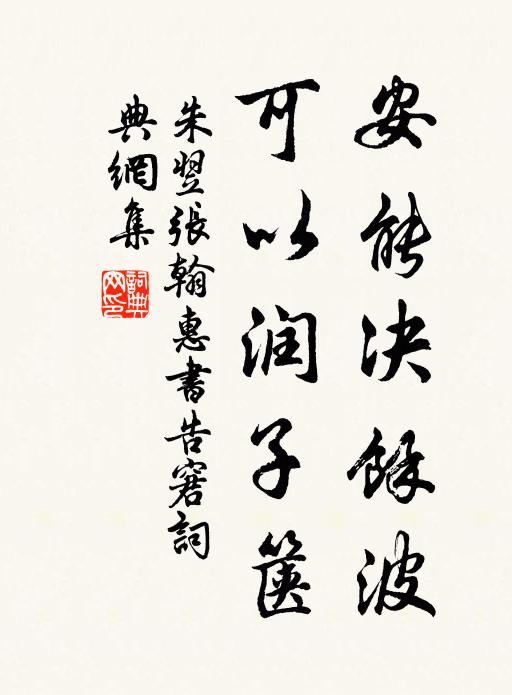 安能决餘波
可以润子箧
朱翌張翰惠書告窘詞
典網集
詞典網印